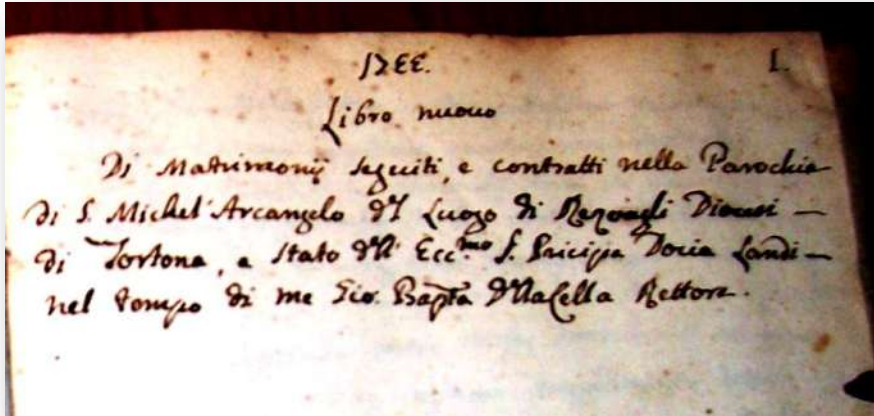 1733. 1.
Libro nuouo
Di Matrimonij seguiti, e contratti nella Parochia
di S. Michel'Arcangelo del Luogo di Rezoagli Diocesi -
di Tortona, e Stato dell' Ecc.mo S. Pricipe Doria Landi -
nel tempo di me Gio. Bapta Della Cella Rettore.